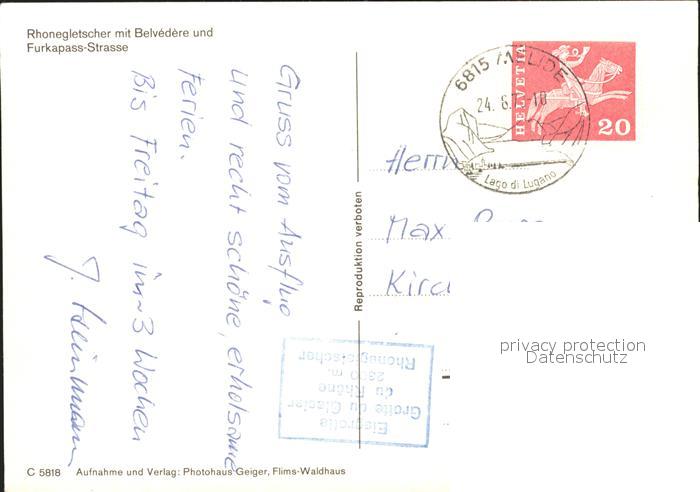 Rhonegletscher mit Belvédère und
Furkapass-Strasse
Gruss vom Ausflug
und recht schöne, erholsame
Ferien.
Bis Freitag in 3 Wochen
Reproduktion verboten
6815 MELIDE
24. 8.
Lago di Lugano
HELVETIA
20
Herrn
Max
Eisgrotte
Grotte du Glacier
du Rhône
2300 m.
Rhonegletscher
privacy protection
Datenschutz
C 5818 Aufnahme und Verlag: Photohaus Geiger, Flims-Waldhaus